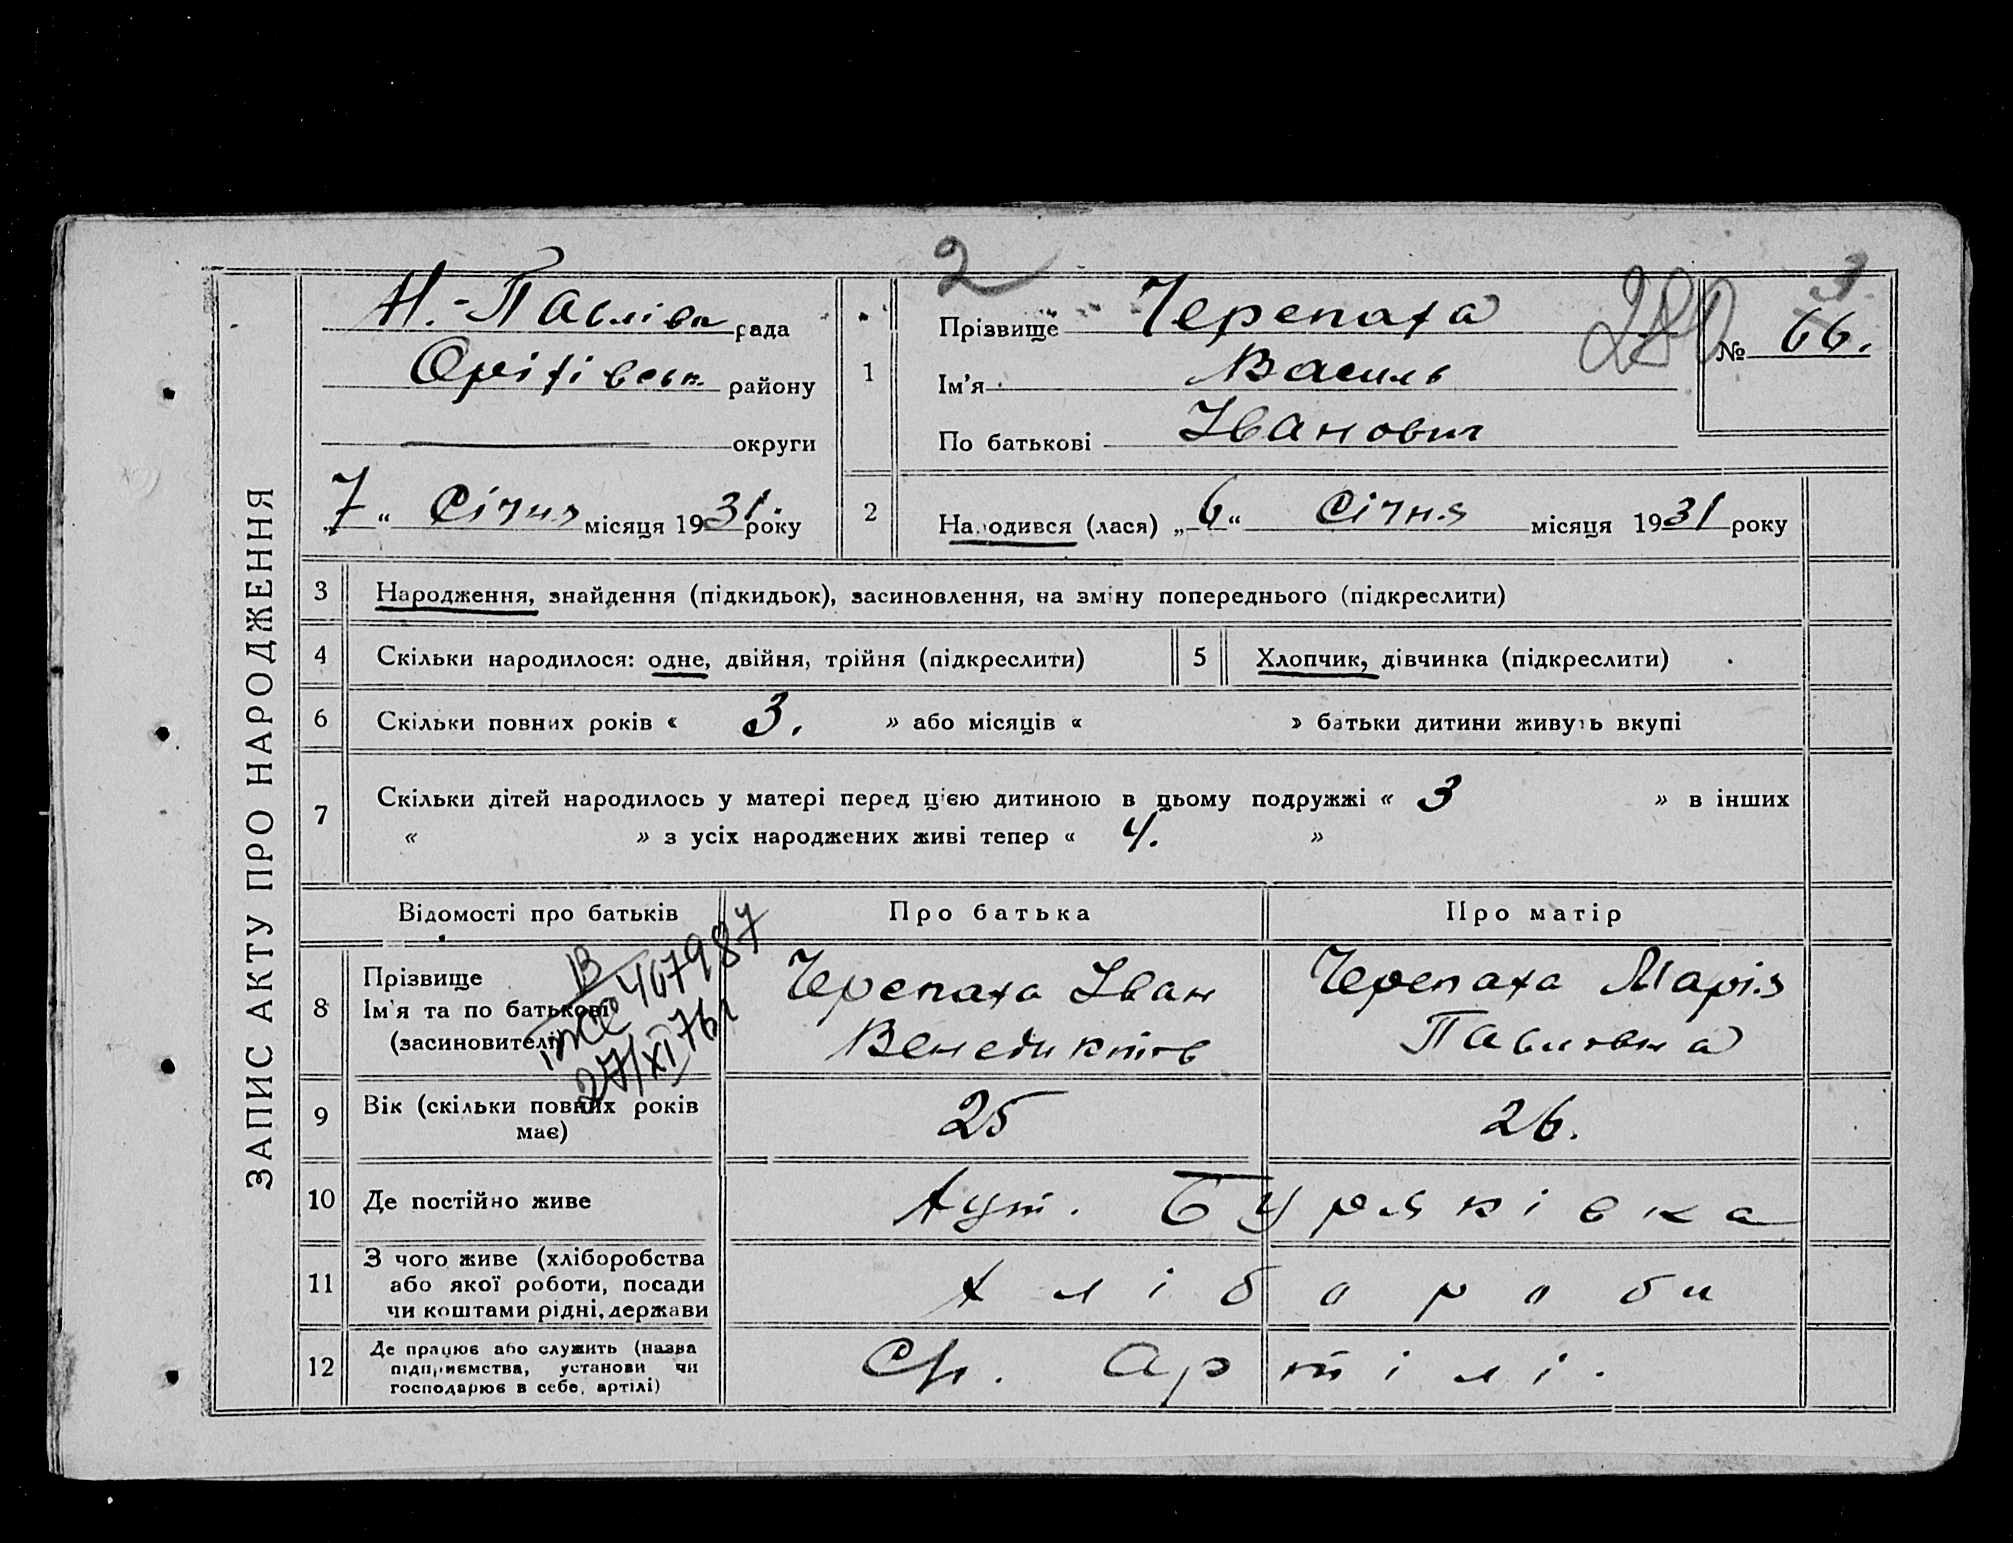 ЗАПИС АКТУ ПРО НАРОДЖЕННЯ
Н.-Павлівн рада
Оріхівськ. району
округи
„7“ Січня місяця 1931 року
2
1
Прізвище Черепаха
Ім'я Василь
По батькові Іванович
280
3
№ 66.
2
Народився (лася) „6“ Січня місяця 1931 року
3 Народження, знайдення (підкидьок), засиновлення, на зміну попереднього (підкреслити)
4 Скільки народилося: одне, двійня, трійня (підкреслити) 5 Хлопчик, дівчинка (підкреслити)
6 Скільки повних років « 3. » або місяців « » батьки дитини живуть вкупі
7 Скільки дітей народилось у матері перед цією дитиною в цьому подружжі « 3 » в інших
« » з усіх народжених живі тепер « 4. »
Відомості про батьків Про батька Про матір
8 Прізвище
Ім'я та по батькові
(засновителі)
Черепаха Іван
Венедиктов
Черепаха Марія
Павловна
467987
27/XI 76г
9 Вік (скільки повних років
має)
25 26.
10 Де постійно живе Хут. Буряківка
11 З чого живе (хліборобства
або якої роботи, посади
чи коштами рідні, держави
хлібороби
12 Де працює або служить (назва
підприємства, установи чи
господарює в себе, артілі)
Ср. Артілі.